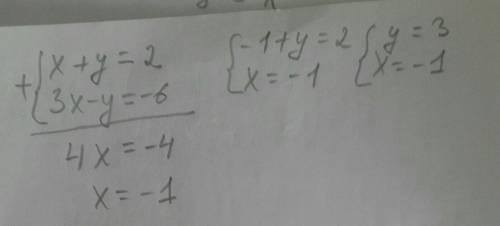 +{x+y=2
3x-y=-6
4x=-4
x=-1
{-1+y=2
x=-1
{y=3
x=-1